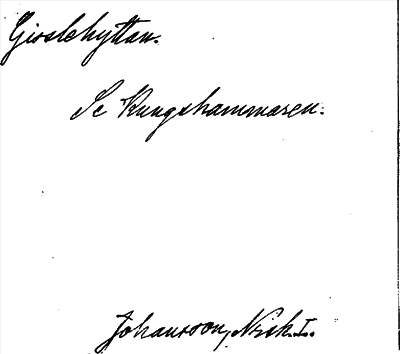 Gisslehyttan.
Se Kungshammaren.
Johansson, Nork I.